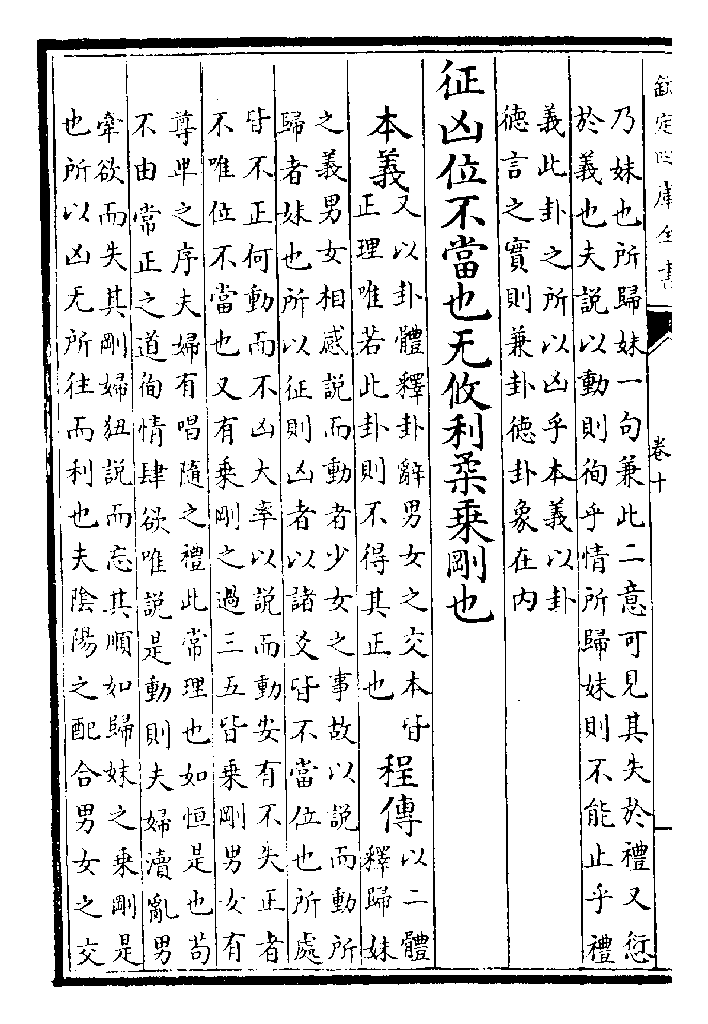 欽定四庫全書
卷十
乃妹也所歸妹一句兼此二意可見其失於禮又愆
於義也夫説以動則徇乎情所歸妹則不能止乎禮
義此卦之所以凶乎本義以卦
德言之實則兼卦德卦象在内
征凶位不當也无攸利柔乗剛也
本義
又以卦體釋卦辭男女之交本皆
正理唯若此卦則不得其正也
程傳
以二體
釋歸妹
之義男女相感説而動者少女之事故以説而動所
歸者妹也所以征則凶者以諸爻皆不當位也所處
皆不正何動而不凶大率以説而動安有不失正者
不唯位不當也又有乗剛之過三五皆乗剛男女有
尊卑之序夫婦有唱隨之禮此常理也如恒是也苟
不由常正之道徇情肆欲唯説是動則夫婦瀆亂男
牽欲而失其剛婦狃説而忘其順如歸妹之乗剛是
也所以凶无所往而利也夫陰陽之配合男女之交